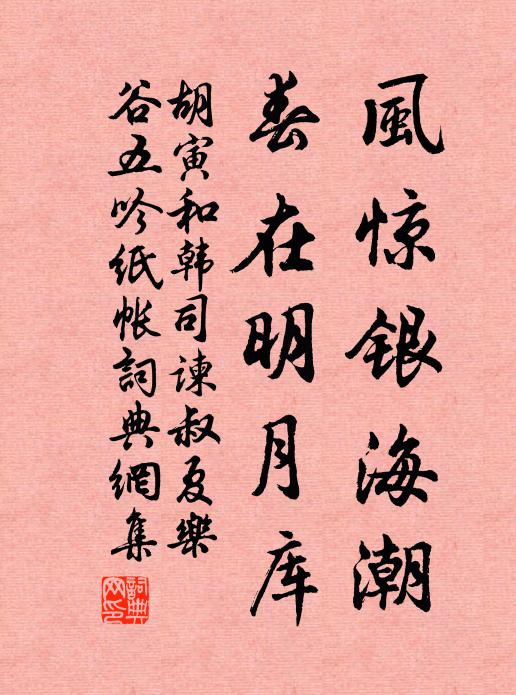 風惊银海潮
春在明月库
胡寅和韩司谏叔夏樂
谷五吟纸帐詞典網集
詞典網印